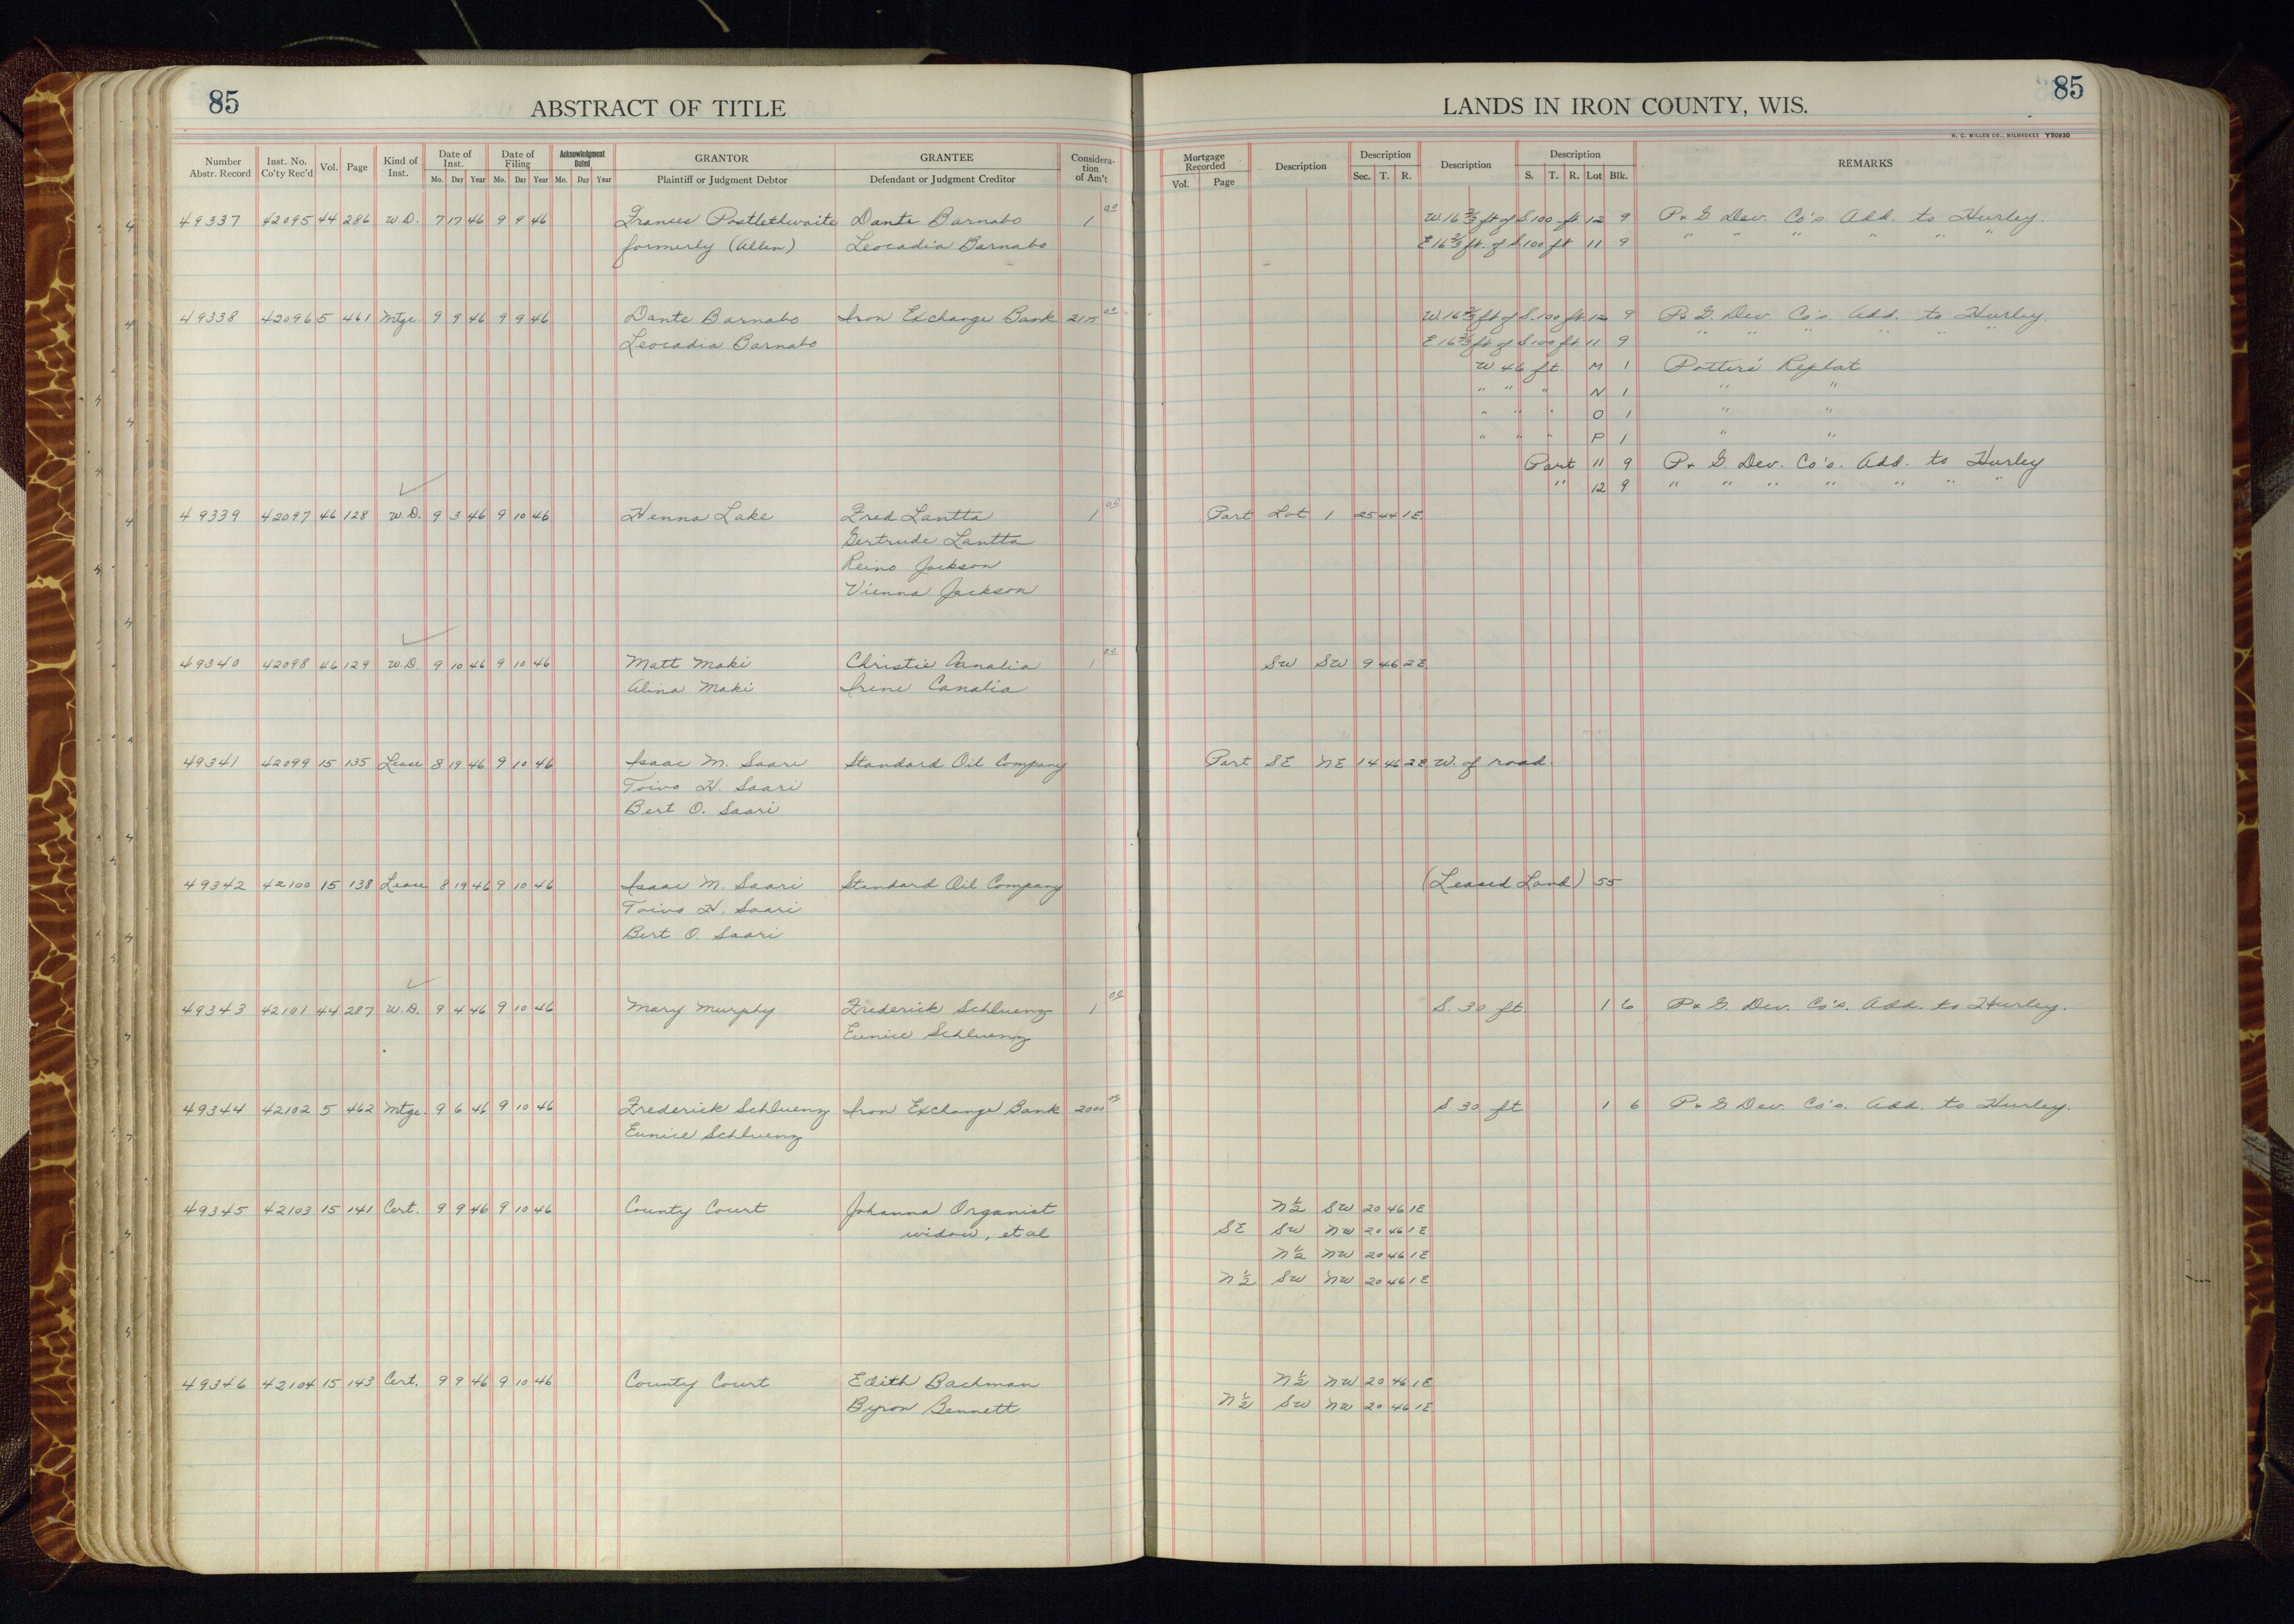 85 ABSTRACT OF TITLE
LANDS IN IRON COUNTY, WIS. 85
H. C. MILLER CO., MILWAUKEE Y50930
Number Abstr. Record Inst. No. Co'ty Rec'd Vol. Page Kind of Inst. Date of Inst. Mo. Day Year Date of Filing Mo. Day Year Acknowledgment Dated Mo. Day Year GRANTOR Plaintiff or Judgment Debtor GRANTEE Defendant or Judgment Creditor Considera-tion of Am't
Mortgage Recorded Vol. Page Description Description Sec. T. R. Description Description S. T. R. Lot Blk. REMARKS
49337 42095 44 286 W.D. 7 17 46 9 9 46 Frances Postlethwaite Dante Barnabo 1 00 W. 16 2/3 ft of S. 100 ft 12 9 P. & G. Dev. Co's Add. to Hurley.
formerly (Allen) Leocadia Barnabo E 16 2/3 ft. of S. 100 ft 11 9 " " " " " "
49338 42096 5 461 Mtge 9 9 46 9 9 46 Dante Barnabo Iron Exchange Bank 2175 00 W. 16 2/3 ft of S. 100 ft. 12 9 P. & G. Dev. Co's. Add. to Hurley.
Leocadia Barnabo E 16 2/3 ft of S 100 ft 11 9 " " " " " "
W. 46 ft. M 1 Potter's Replat
" " " N 1 " "
" " " O 1 " "
" " " P 1 " "
Part 11 9 P. & G. Dev. Co's. Add. to Hurley
" 12 9 " " " " " " "
49339 42097 46 128 W.D. 9 3 46 9 10 46 Henna Lake Fred Lantta 1 00 Part Lot 1 25 44 1E
Gertrude Lantta
Reino Jackson
Vienna Jackson
49340 42098 46 129 W.D. 9 10 46 9 10 46 Matt Maki Christie Canalia 1 00 SW SW 9 46 2E
Alina Maki Irene Canalia
49341 42099 15 135 Lease 8 19 46 9 10 46 Isaac M. Saari Standard Oil Company Part SE NE 14 46 2E W. of road.
Toivo H. Saari
Bert O. Saari
49342 42100 15 138 Lease 8 19 46 9 10 46 Isaac M. Saari Standard Oil Company (Leased Land) 55
Toivo H. Saari
Bert O. Saari
49343 42101 44 287 W.D. 9 4 46 9 10 46 Mary Murphy Frederick Schluenz 1 00 S. 30 ft. 1 6 P. & G. Dev. Co's. Add. to Hurley.
Eunice Schluenz
49344 42102 5 462 Mtge. 9 6 46 9 10 46 Frederick Schluenz Iron Exchange Bank 2000 00 S. 30 ft 1 6 P. & G Dev. Co's. Add. to Hurley.
Eunice Schluenz
49345 42103 15 141 Cert. 9 9 46 9 10 46 County Court Johanna Organist N 1/2 SW 20 46 1E
widow, et al SE SW NW 20 46 1E
N 1/2 NW 20 46 1E
N 1/2 SW NW 20 46 1E
49346 42104 15 143 Cert. 9 9 46 9 10 46 County Court Edith Bachman N 1/2 NW 20 46 1E
Byron Bennett N 1/2 SW NW 20 46 1E